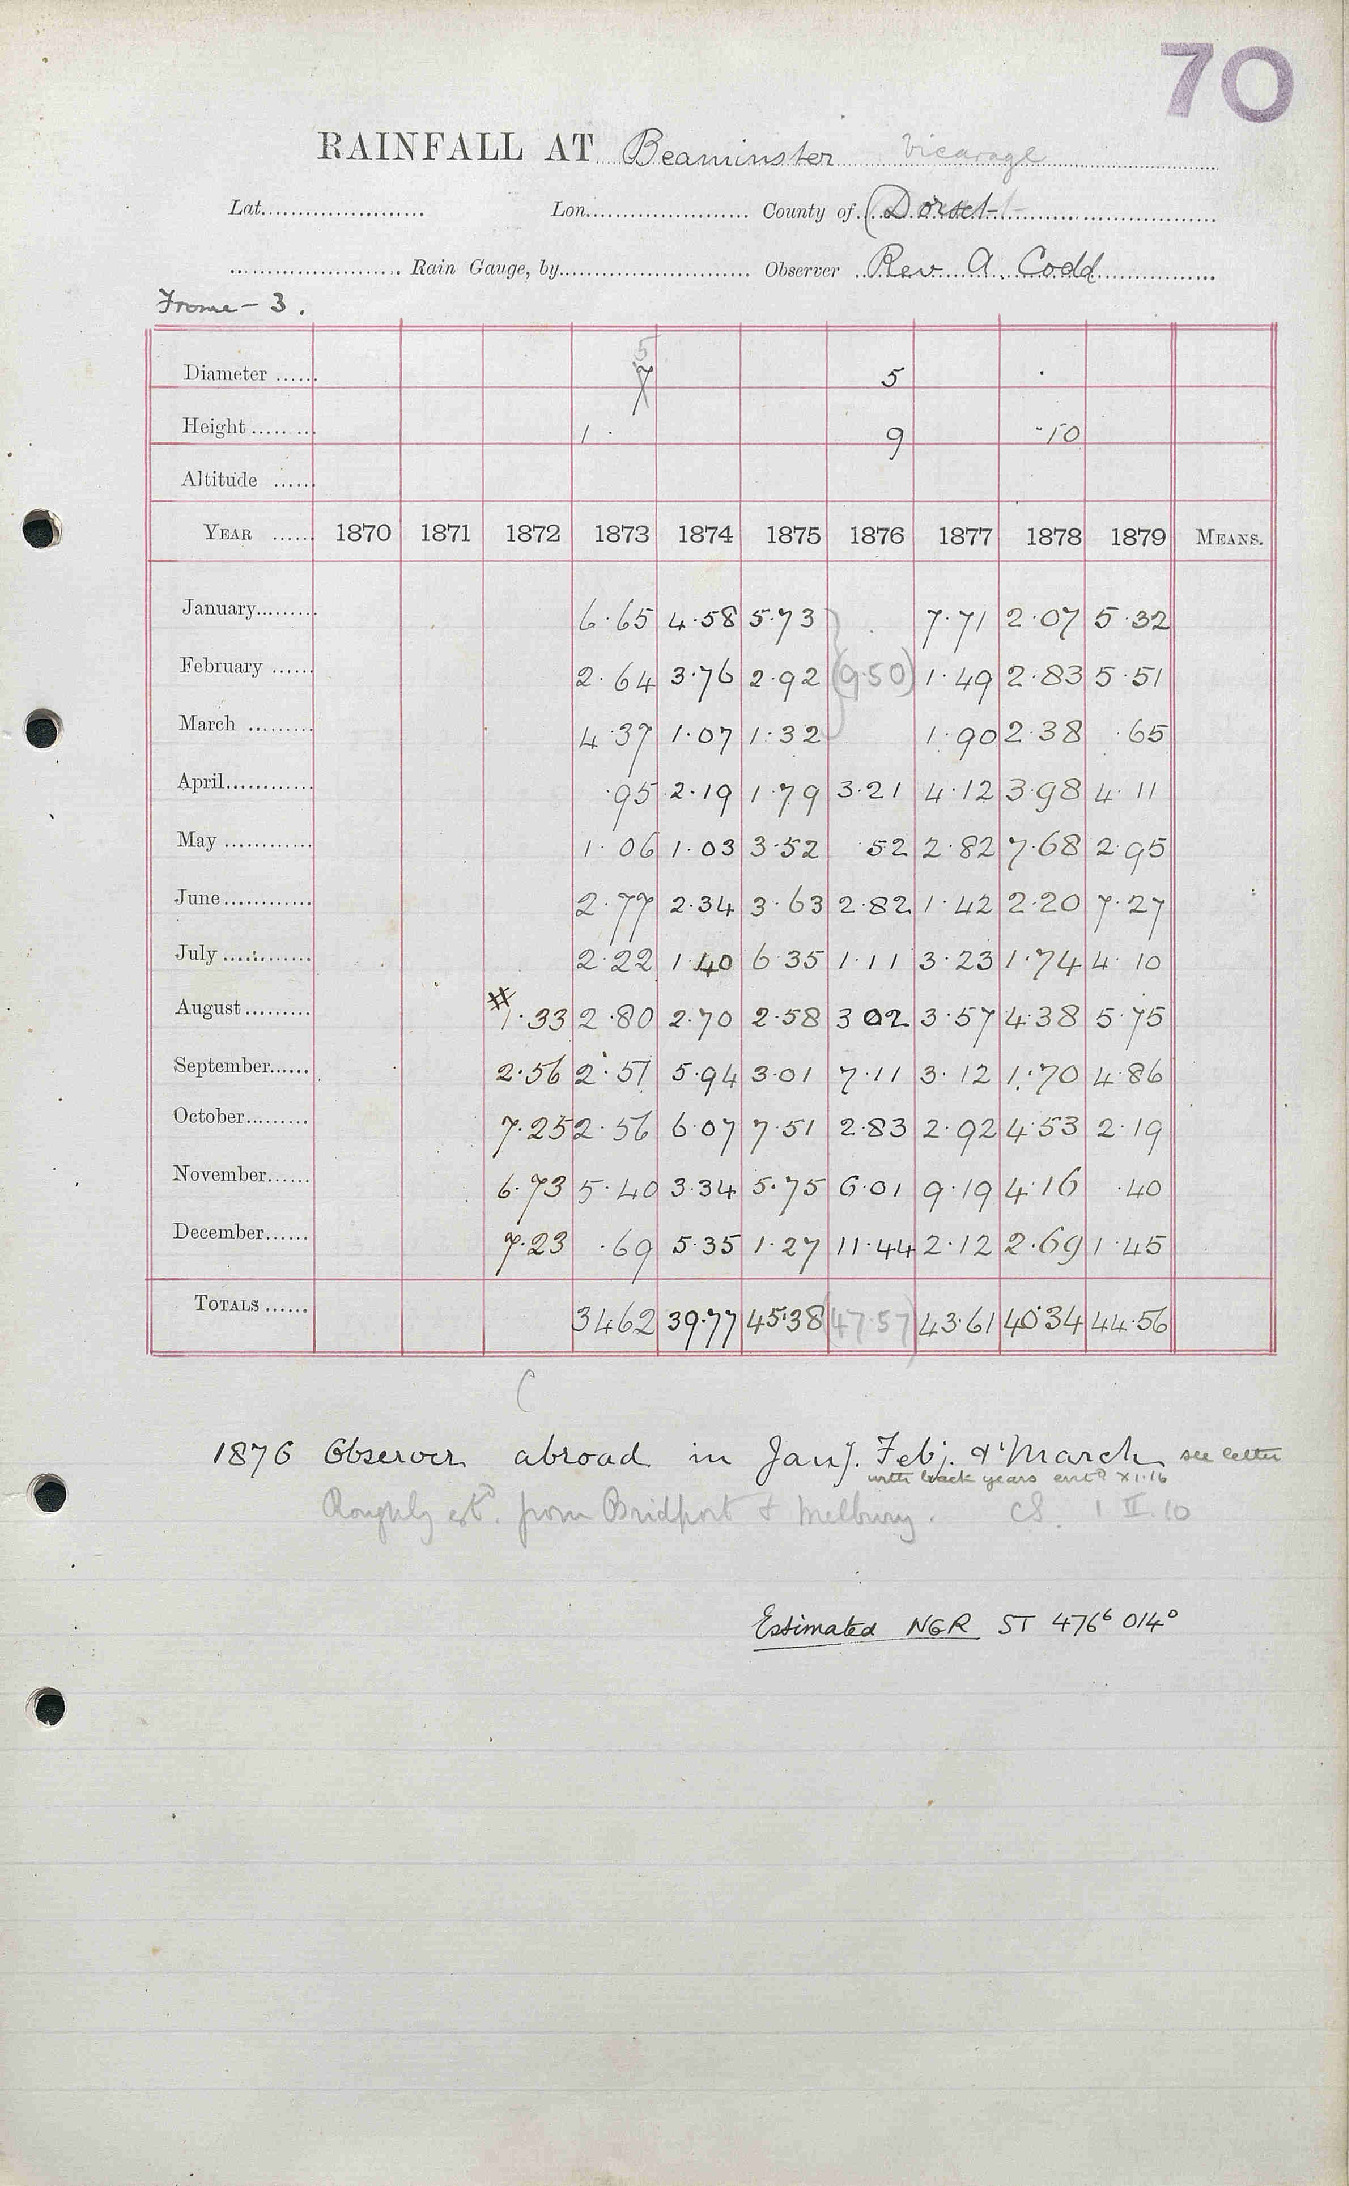 70
RAINFALL AT Beaminster Vicarage
Lat. Lon. County of (Dorset
Rain Gauge, by Observer Rev A. Codd
Frome - 3.
5
Diameter 7 5
Height 1 9 10
Altitude
YEAR 1870 1871 1872 1873 1874 1875 1876 1877 1878 1879 MEANS.
January 6.65 4.58 5.73 7.71 2.07 5.32
February 2.64 3.76 2.92 (9.50) 1.49 2.83 5.51
March 4.37 1.07 1.32 1.90 2.38 .65
April .95 2.19 1.79 3.21 4.12 3.98 4.11
May 1.06 1.03 3.52 .52 2.82 7.68 2.95
June 2.77 2.34 3.63 2.82 1.42 2.20 7.27
July 2.22 1.40 6.35 1.11 3.23 1.74 4.10
#
August 1.33 2.80 2.70 2.58 3 02 3.57 4.38 5.75
September 2.56 2.51 5.94 3.01 7.11 3.12 1.70 4.86
October 7.25 2.56 6.07 7.51 2.83 2.92 4.53 2.19
November 6.73 5.40 3.34 5.75 6.01 9.19 4.16 .40
December 7.23 .69 5.35 1.27 11.44 2.12 2.69 1.45
TOTALS 34 62 39.77 45.38 (47.57) 43.61 40.34 44.56
1876 Observer abroad in Jany. Feby. & March see letter
with back years entd XI.16
Roughly estd. from Bridport & Melbury. CS. 1 II.10
Estimated NGR ST 476⁶ 014⁰